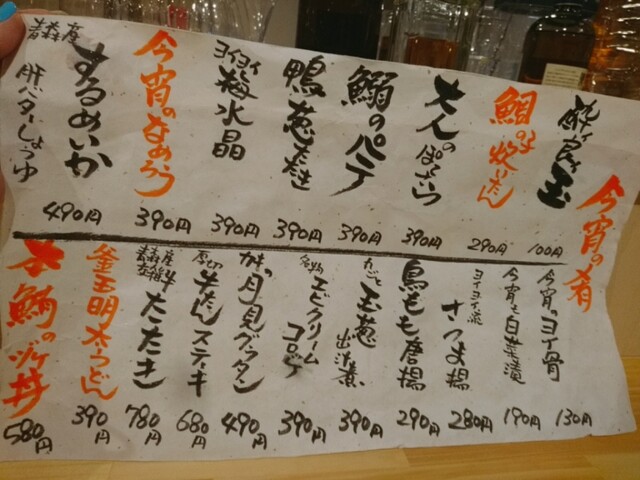 今宵の肴
酔い良い玉
100円
鯛の子炊いたん
290円
大人のぽてさら
390円
鰯のパテ
390円
鴨葱たたき
390円
ヨイヨイ梅水晶
390円
今宵のなめろう
390円
青森産
するめいか
肝バターしょうゆ
490円
今宵のヨイ骨
130円
今宵も白菜漬
190円
ヨイヨイ流
さつま揚
280円
鳥もも唐揚
290円
丸ごと
玉葱
出汁煮
390円
名物
エビクリーム
コロッケ
390円
カキの月見グラタン
490円
厚切
牛たんステーキ
680円
青森産
たたき
780円
釜玉明太うどん
390円
本鮪のヅケ丼
580円